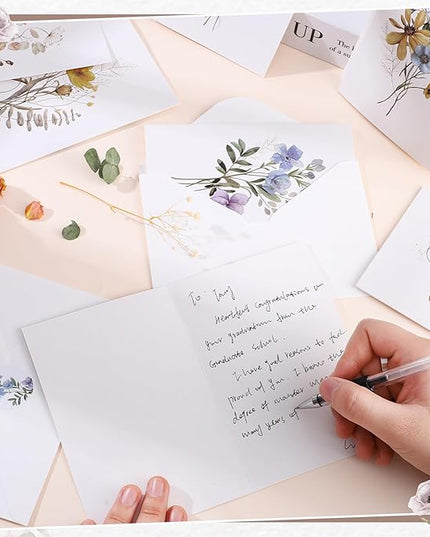 UP
The
of a su
To Tmy
Heartfelt congratulations on
your graduation from the
Graduate School.
I have good reasons to feel
proud of you. I know the
degree of master
many years of